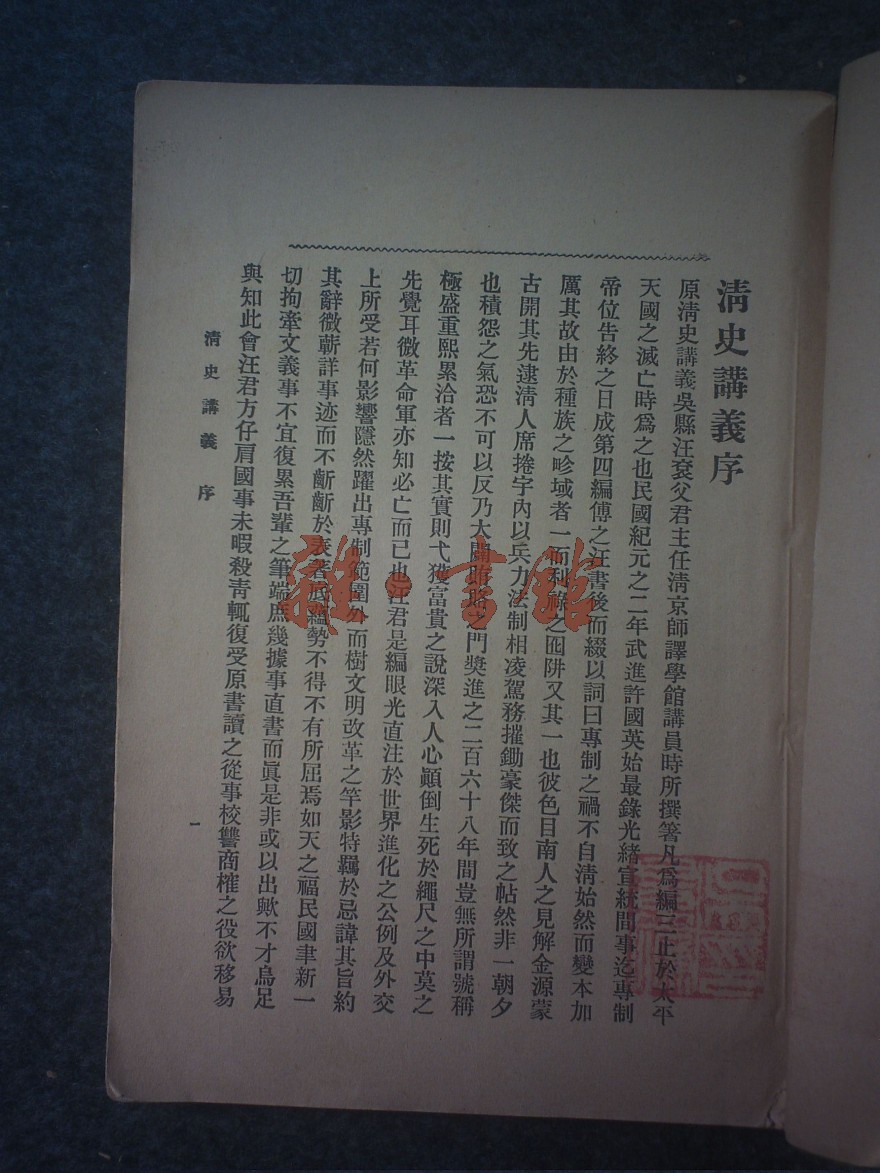 清史講義序
原清史講義吳縣汪袞父君主任淸京師譯學館講員時所撰箸凡爲編三止於太平
天國之滅亡時爲之也民國紀元之二年武進許國英始最錄光緒宣統間事迄專制
帝位告終之日成第四編傅之汪書後而綴以詞曰專制之禍不自淸始然而變本加
厲其故由於種族之畛域者一而利祿之囮阱又其一也彼色目南人之見解金源蒙
古開其先逮淸人席捲宇內以兵力法制相凌駕務摧鋤豪傑而致之帖然非一朝夕
也積怨之氣恐不可以反乃大闢之門奬進之二百六十八年間豈無所謂號稱
極盛重熙累洽者一按其實則弋獲富貴之說深入人心顚倒生死於繩尺之中莫之
先覺耳微革命軍亦知必亡而已也汪君是編眼光直注於世界進化之公例及外交
上所受若何影響隱然躍出專制範圍外而樹文明改革之竿影特羈於忌諱其旨約
其辭微蘄詳事迹而不齗齗於表著底蘊勢不得不有所屈焉如天之福民國聿新一
切拘牽文義事不宜復累吾輩之筆端庶幾據事直書而眞是非或以出歟不才烏足
與知此會汪君方仔肩國事未暇殺靑輒復受原書讀之從事校讐商榷之役欲移易
清史講義 序
一
雜·書館